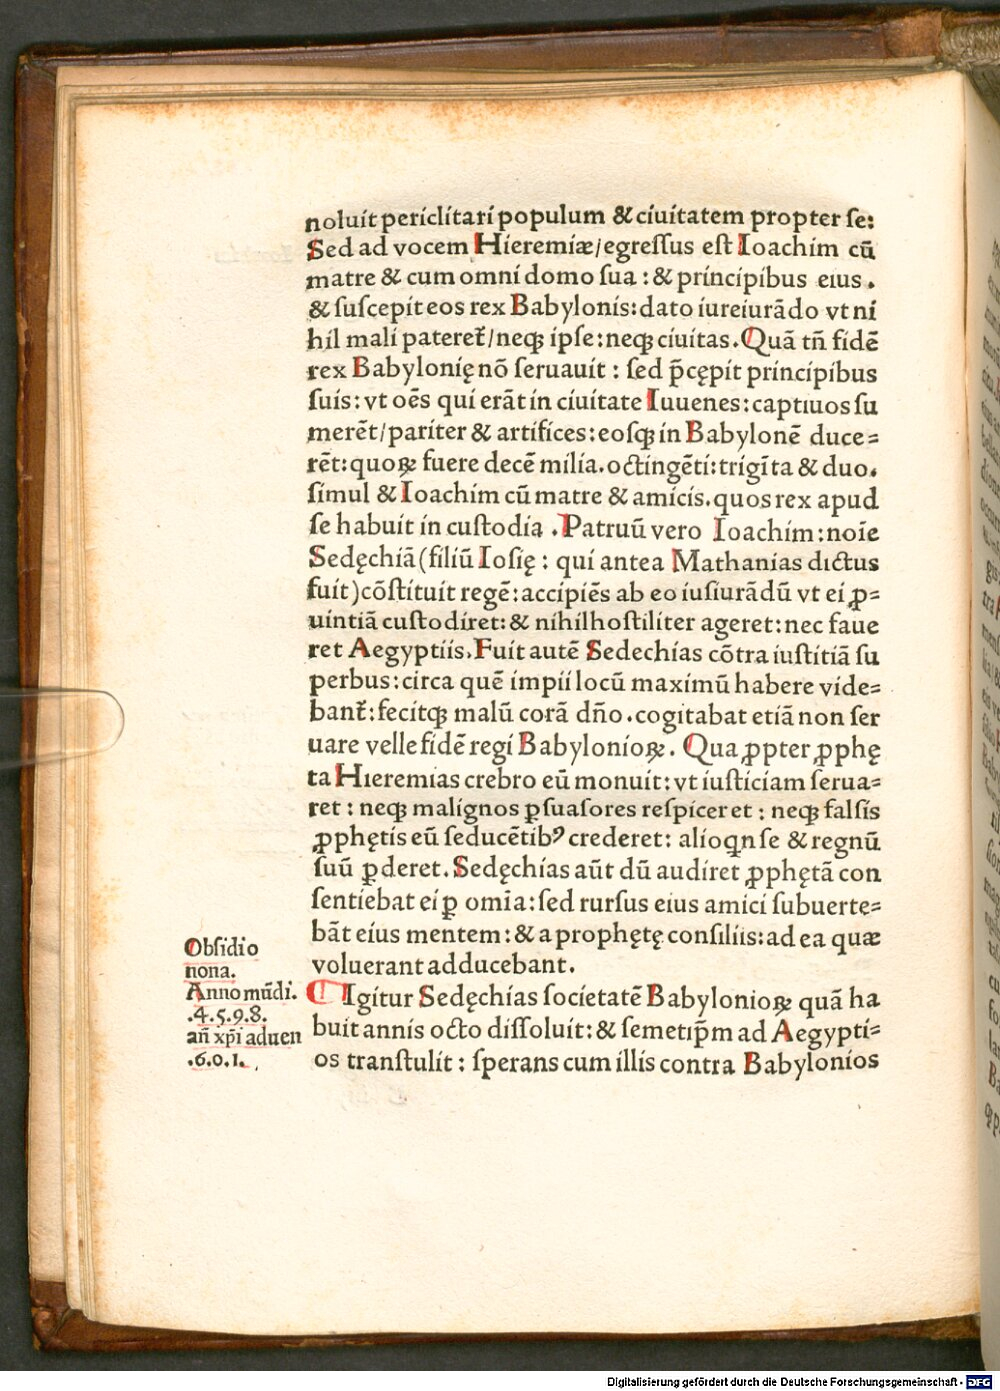 noluit periclitari populum & ciuitatem propter se:
Sed ad vocem Hieremiæ/egressus est Ioachim cū
matre & cum omni domo sua : & principibus eius .
& suscepit eos rex Babylonis: dato iureiurādo vt ni
hil mali pateret᷑/neqꝫ ipse: neqꝫ ciuitas. Quā tñ fidē
rex Babylonię nō seruauit : sed p̄cępit principibus
suis: vt oēs qui erāt in ciuitate Iuuenes: captiuos su
merēt/pariter & artifices: eosqꝫ in Babylonē duce=
rēt: quoꝝ fuere decē milia. octingēti: trigīta & duo.
simul & Ioachim cū matre & amicis. quos rex apud
se habuit in custodia . Patruū vero Ioachim: noīe
Sedęchiā (filiū Iosię : qui antea Mathanias dictus
fuit) cōstituit regē: accipiēs ab eo iusiurādū vt ei ꝓ=
uintiā custodiret: & nihil hostiliter ageret: nec faue
ret Aegyptiis. Fuit autē Sedechias cōtra iustitiā su
perbus: circa quē impii locū maximū habere vide=
bant᷑: fecitqꝫ malū corā dño . cogitabat etiā non ser
uare velle fidē regi Babylonioꝝ. Qua ꝓpter ꝓphę
ta Hieremias crebro eū monuit: vt iusticiam serua=
ret : neqꝫ malignos ꝑsuasores respiceret : neqꝫ falsis
ꝓphętis eū seducētibꝰ crederet: alioqn se & regnū
suū ꝑderet. Sedęchias aūt dū audiret ꝓphętā con
sentiebat ei ꝑ omīa: sed rursus eius amici subuerte=
bāt eius mentem: & a prophętę consiliis: ad ea quæ
voluerant adducebant.
Obsidio
nona.
Anno mūdi.
.4.5.9.8.
añ xp̄i aduen
.6.0.1.
Igitur Sedęchias societatē Babylonioꝝ quā ha
buit annis octo dissoluit: & semetip̄m ad Aegypti=
os transtulit : sperans cum illis contra Babylonios
Digitalisierung gefördert durch die Deutsche Forschungsgemeinschaft - DFG